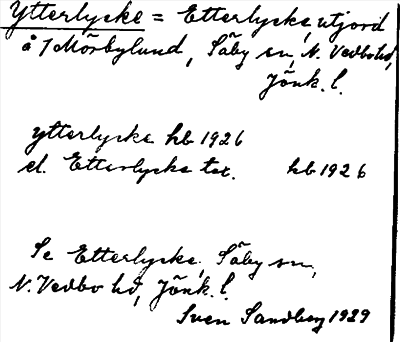 Ytterlycke = Etterlycke, utjord
å 1 Mörbylund, Säby sn, N. Vedbo hd,
Jönk. l.
Ytterlycke hb 1926
el. Etterlycke tex. hb 1926
Se Etterlycke, Säby sn,
N. Vedbo hd, Jönk. l.
Sven Sandberg 1929